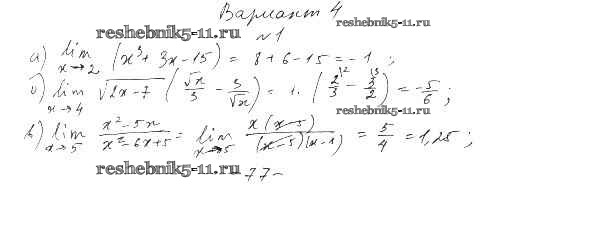 Вариант 4
reshebnik5-11.ru
reshebnik5-11.ru
№1
а) lim x→2 (x³ + 3x - 15) = 8 + 6 - 15 = - 1 ;
б) lim x→4 √(2x - 7) (√x/3 - 3/√x) = 1 · (2/3 - 3/2) = -5/6 ;
reshebnik5-11.ru
в) lim x→5 (x² - 5x)/(x² - 6x + 5) = lim x→5 x(x-5)/((x-5)(x-1)) = 5/4 = 1,25 ;
reshebnik5-11.ru